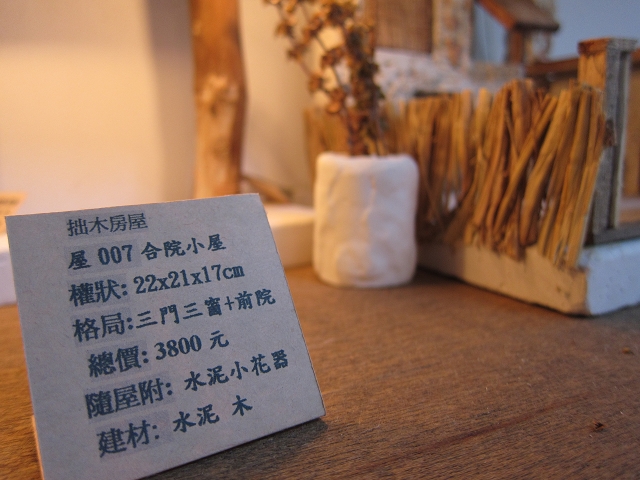 拙木房屋
屋 007 合院小屋
權狀: 22x21x17cm
格局:三門三窗+前院
總價: 3800 元
隨屋附: 水泥小花器
建材: 水泥 木